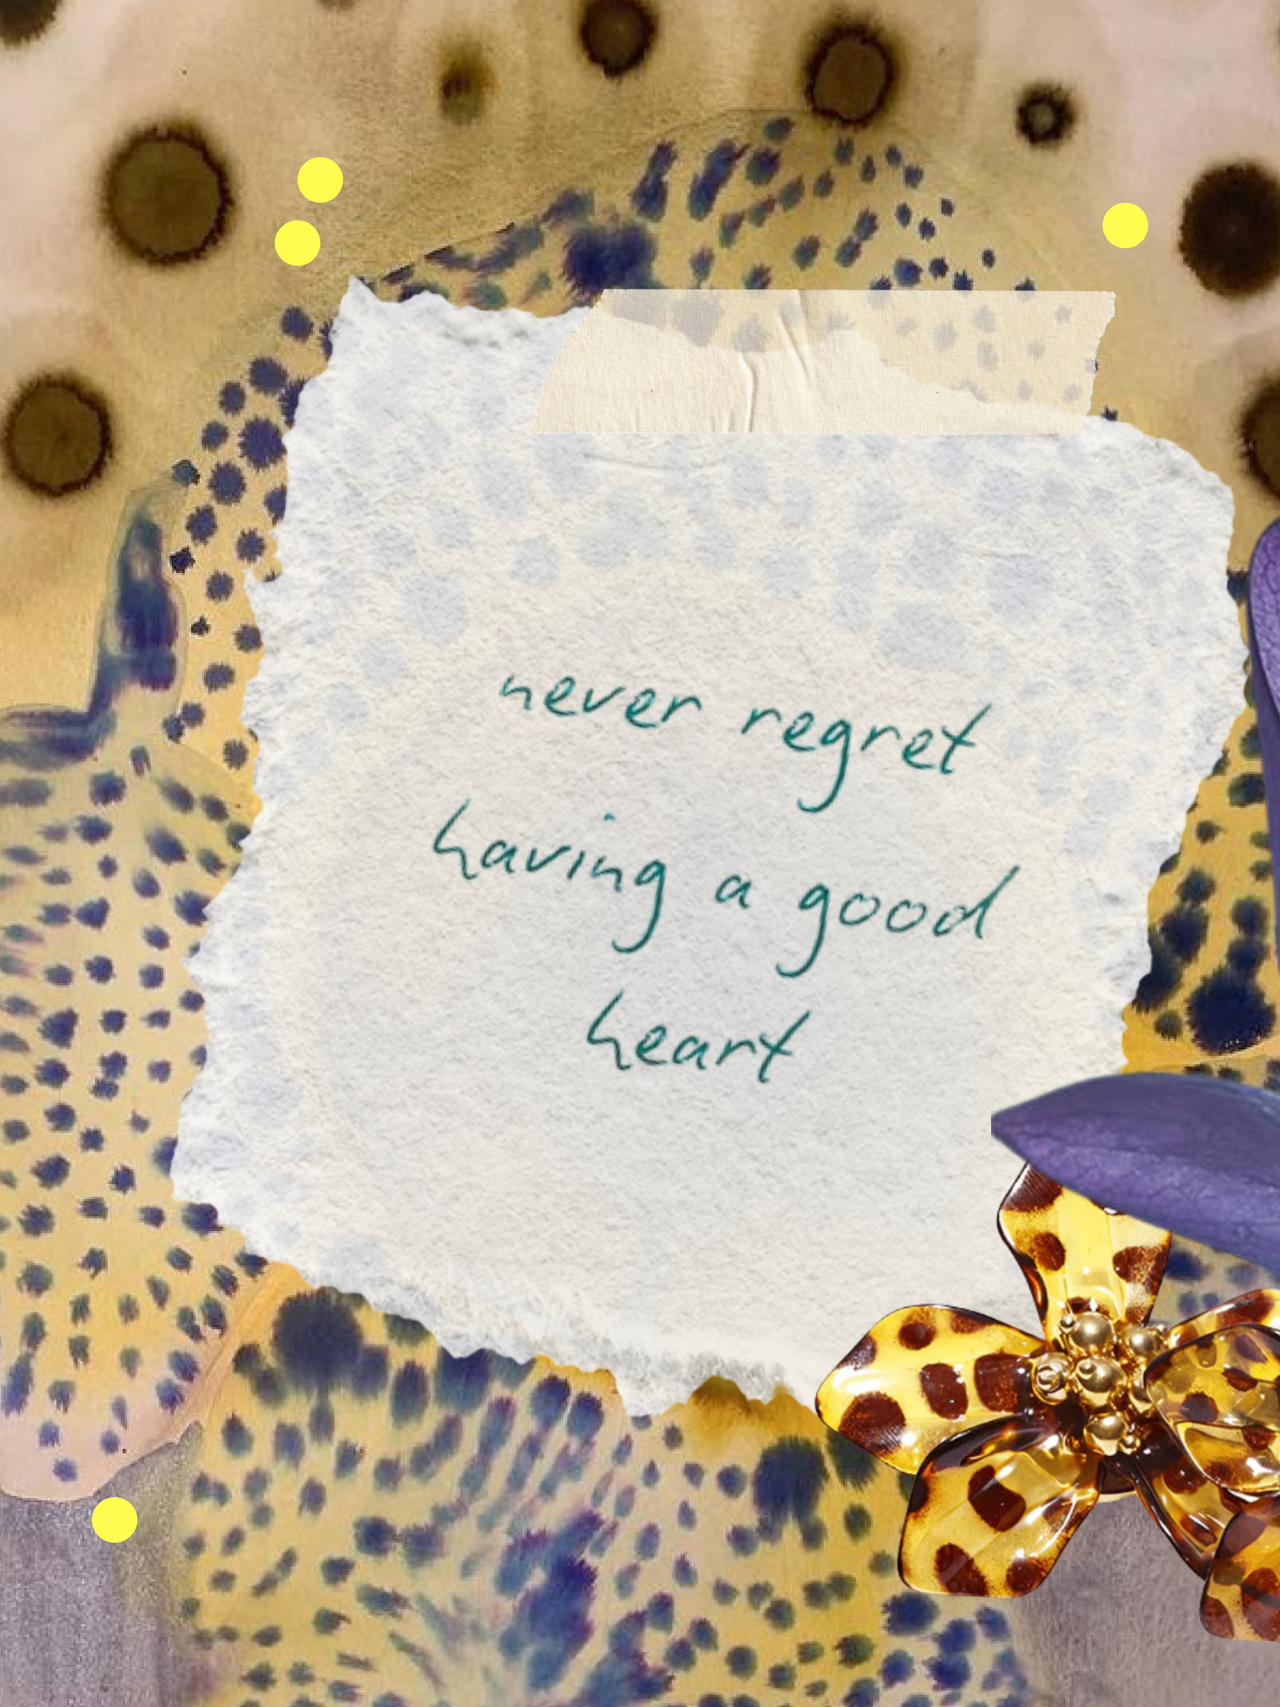 never regret
having a good
heart